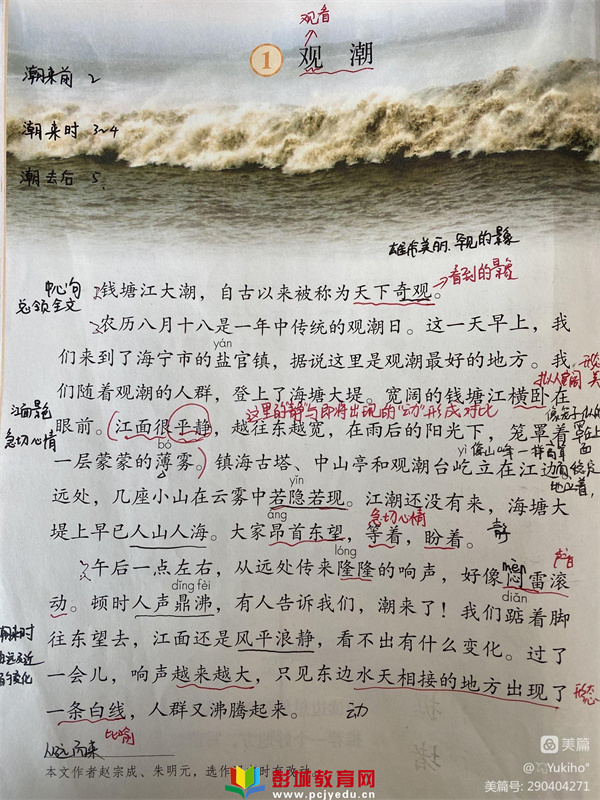 观看
1 观潮
潮来前 2
潮来时 3~4
潮去后 5.
雄伟美丽、罕见的景象
看到的景象
中心句
总领全文
钱塘江大潮，自古以来被称为天下奇观。
农历八月十八是一年中传统的观潮日。这一天早上，我
yán
们来到了海宁市的盐官镇，据说这里是观潮最好的地方。我
们随着观潮的人群，登上了海塘大堤。宽阔的钱塘江横卧在
拟人 宽阔
江面景色
急切心情
这里的"静"与即将出现的"动"形成对比
眼前。江面很平静，越往东越宽，在雨后的阳光下，笼罩着
bó
yì 像山峰一样高耸
一层蒙蒙的薄雾。镇海古塔、中山亭和观潮台屹立在江边。
yǐn
远处，几座小山在云雾中若隐若现。江潮还没有来，海塘大
áng
急切心情
堤上早已人山人海。大家昂首东望，等着，盼着。 静
lóng
mèn
声音
午后一点左右，从远处传来隆隆的响声，好像闷雷滚
dǐng fèi
diǎn
动。顿时人声鼎沸，有人告诉我们，潮来了！我们踮着脚
潮来时
往东望去，江面还是风平浪静，看不出有什么变化。过了
一会儿，响声越来越大，只见东边水天相接的地方出现了
形态
一条白线，人群又沸腾起来。 动
比喻
从远而来
本文作者赵宗成、朱明元，选作课文时有改动。
彭城教育网
www.pcjyedu.cn
美篇
@Yukiho
美篇号: 290404271